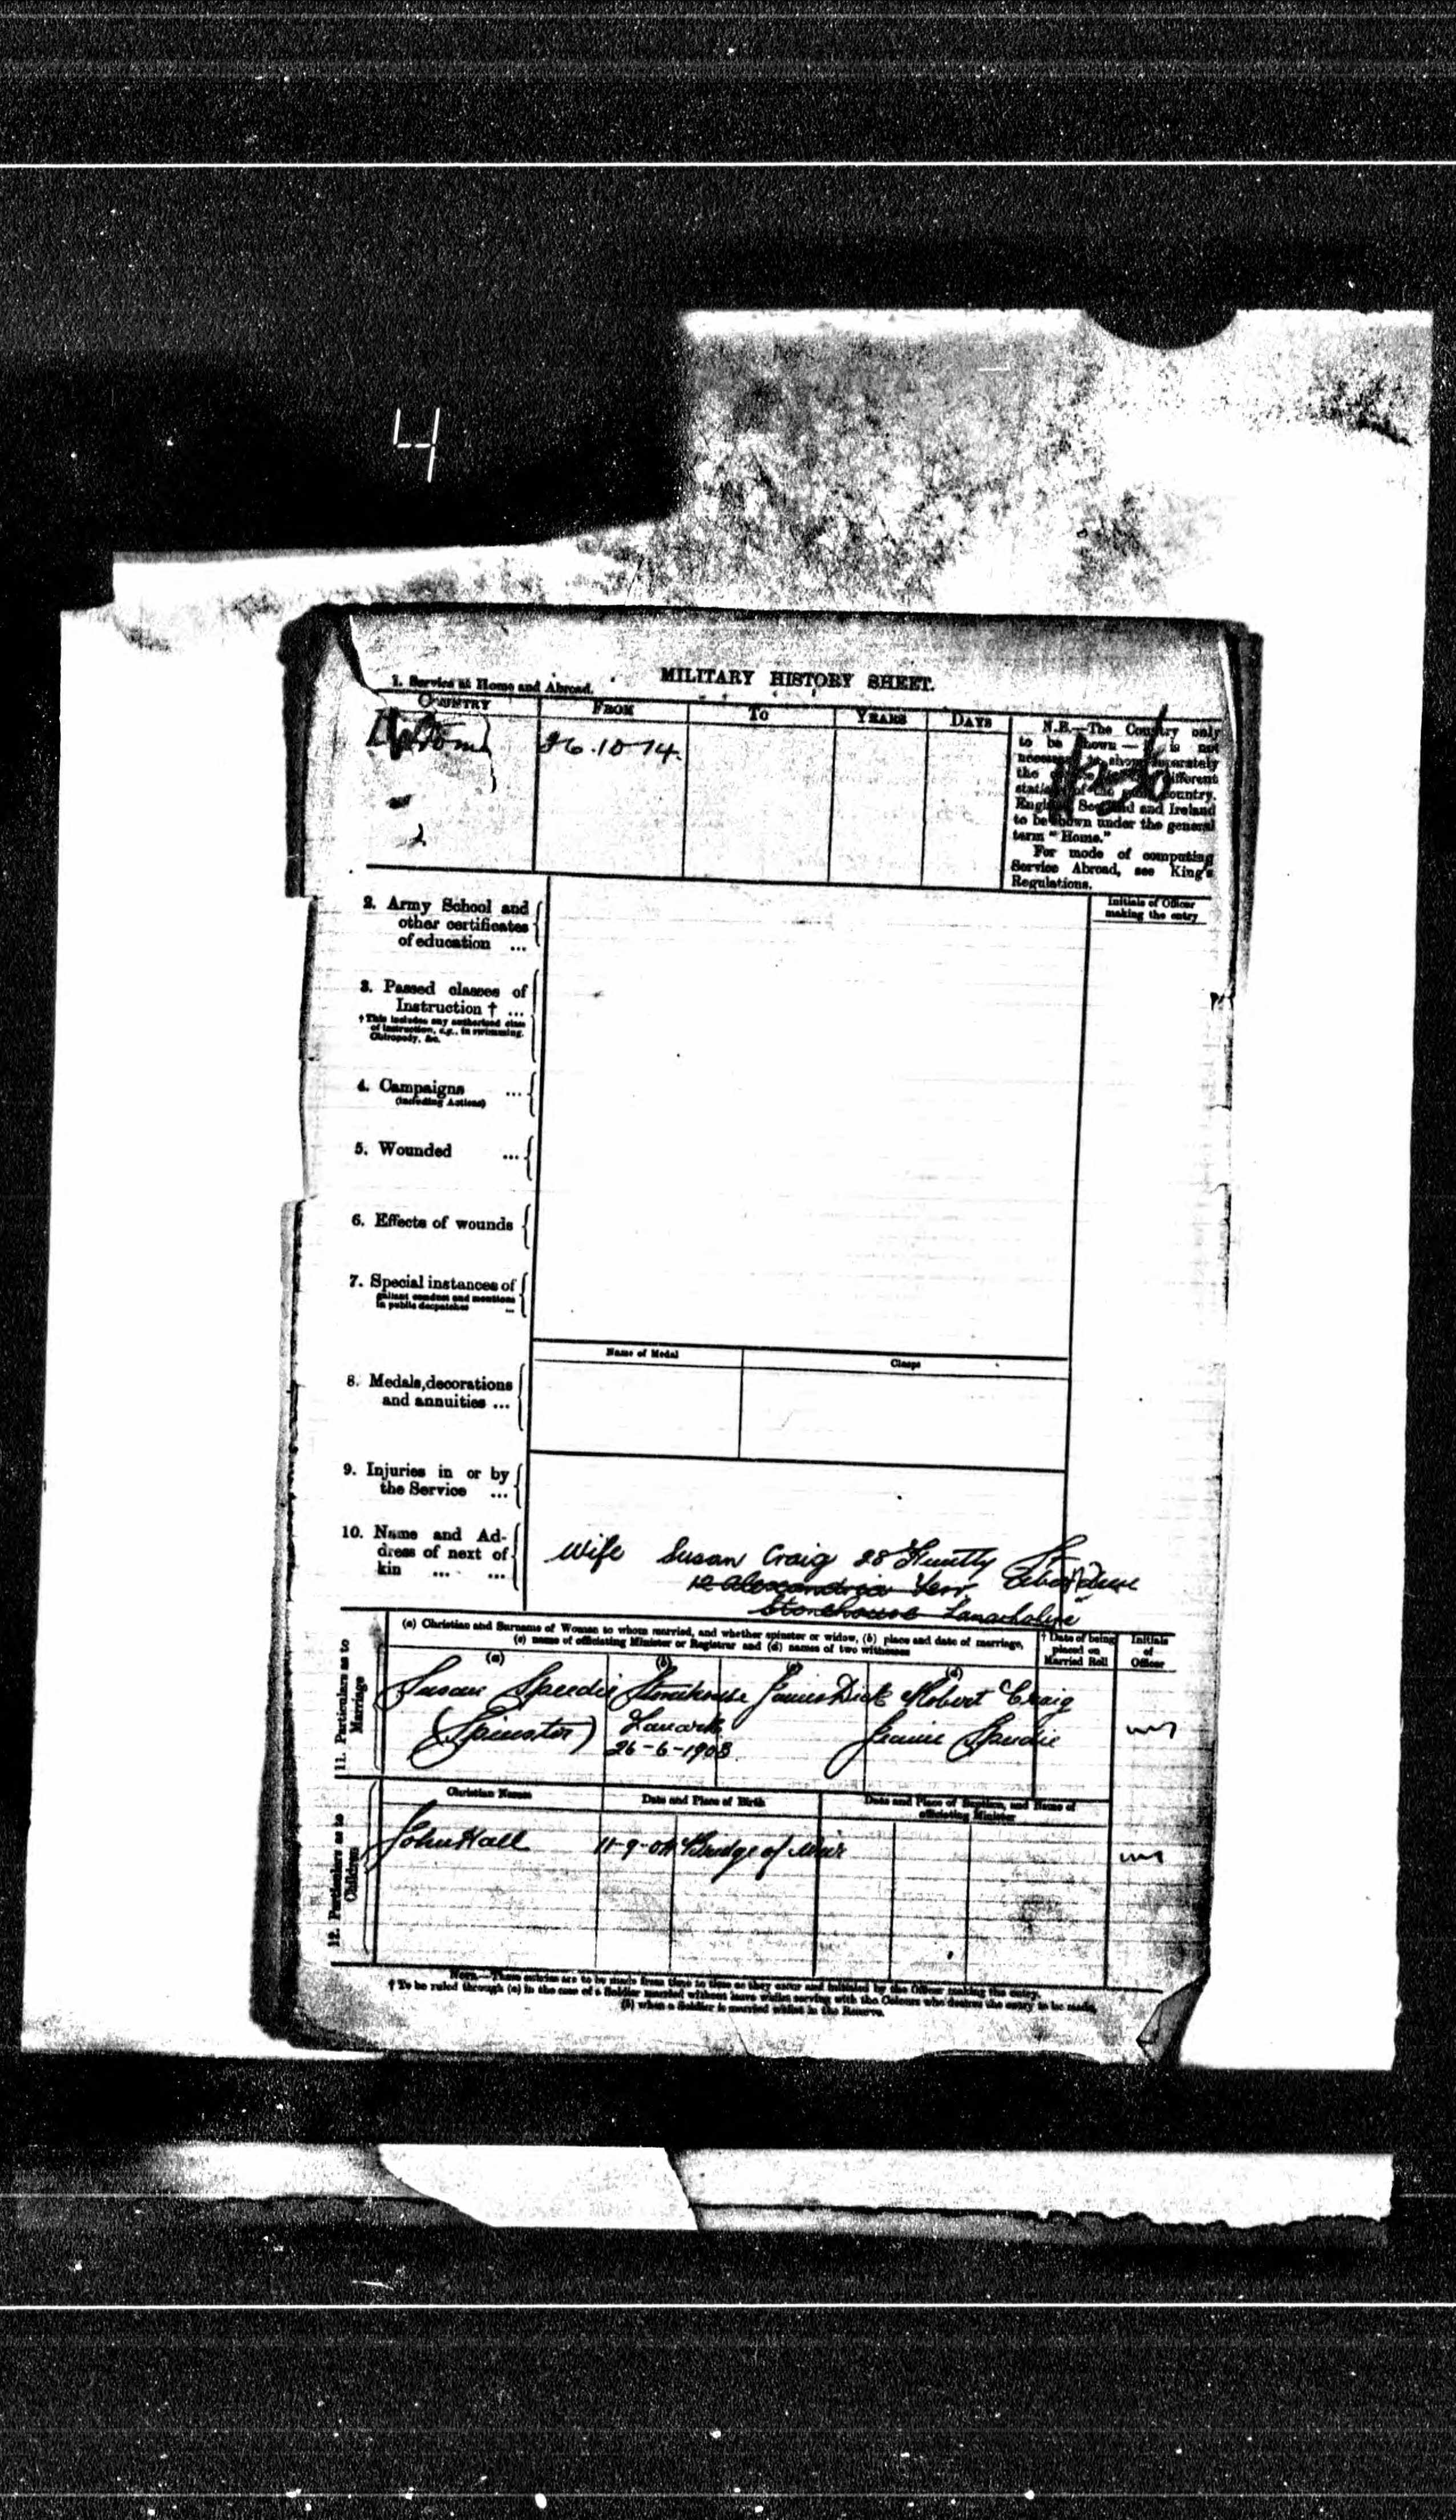 4
MILITARY HISTORY SHEET.
1. Service at Home and Abroad.
COUNTRY FROM TO YEARS DAYS
Home 26.10.14.
2
N.B.—The Country only
to be shown — it is not
necessary to show separately
the different
stations of the same country.
England Scotland and Ireland
to be shown under the general
term "Home."
For mode of computing
Service Abroad, see King's
Regulations.
Initials of Officer
making the entry
2. Army School and
other certificates
of education ...
3. Passed classes of
Instruction † ...
† This includes any authorised class
of instruction, e.g., in swimming,
Chiropody, &c.
4. Campaigns ...
(including Actions)
5. Wounded ...
6. Effects of wounds
7. Special instances of
gallant conduct and mentions
in public despatches ...
Name of Medal Clasps
8. Medals, decorations
and annuities ...
9. Injuries in or by
the Service ...
10. Name and Ad-
dress of next of
kin ... ...
Wife Susan Craig 28 Huntly St
12 Alexandria Terr
Stonehouse Lanarkshire
11. Particulars as to
Marriage
(a) Christian and Surname of Woman to whom married, and whether spinster or widow, (b) place and date of marriage,
(c) name of officiating Minister or Registrar and (d) names of two witnesses
† Date of being
placed on
Married Roll
Initials
of
Officer
(a) (b) (c) (d)
Susan Speedie Stonehouse James Dick Robert Craig
(Spinster) Lanark Jeanie Speedie
26-6-1903.
12. Particulars as to
Children
Christian Names Date and Place of Birth Date and Place of Baptism, and Name of
officiating Minister
John Hall 11-9-04 Bridge of Weir
NOTE.—These entries are to be made from time to time as they occur and initialed by the Officer making the entry.
† To be ruled through (a) in the case of a Soldier married without leave whilst serving with the Colours who desires the entry to be made,
(b) when a Soldier is married whilst in the Reserve.